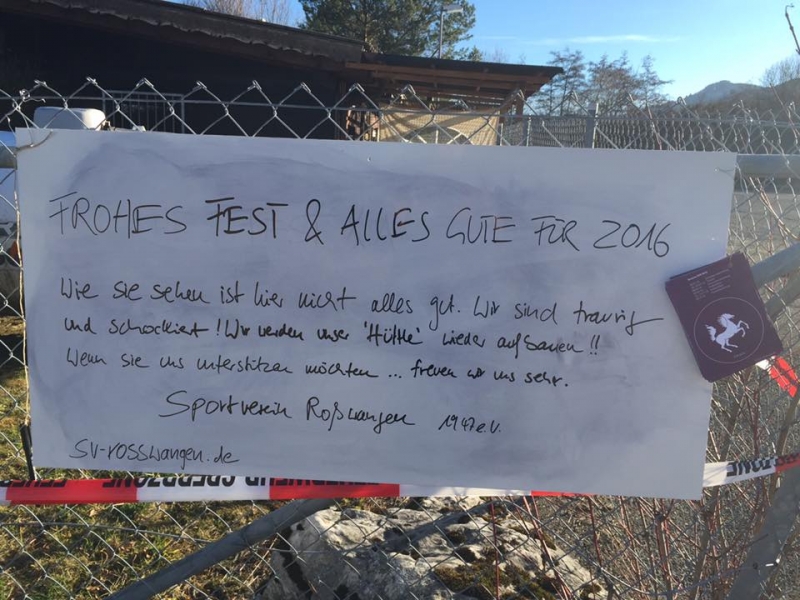 FROHES FEST & ALLES GUTE FÜR 2016
Wie sie sehen ist hier nicht alles gut. Wir sind traurig
und schockiert! Wir werden unser 'Hüttle' wieder aufbauen!!
Wenn sie uns unterstützen möchten ... freuen wir uns sehr.
Sportverein Roßwangen 1947 e.V.
SV-rosswangen.de
FEUERWEHR SPERRZONE